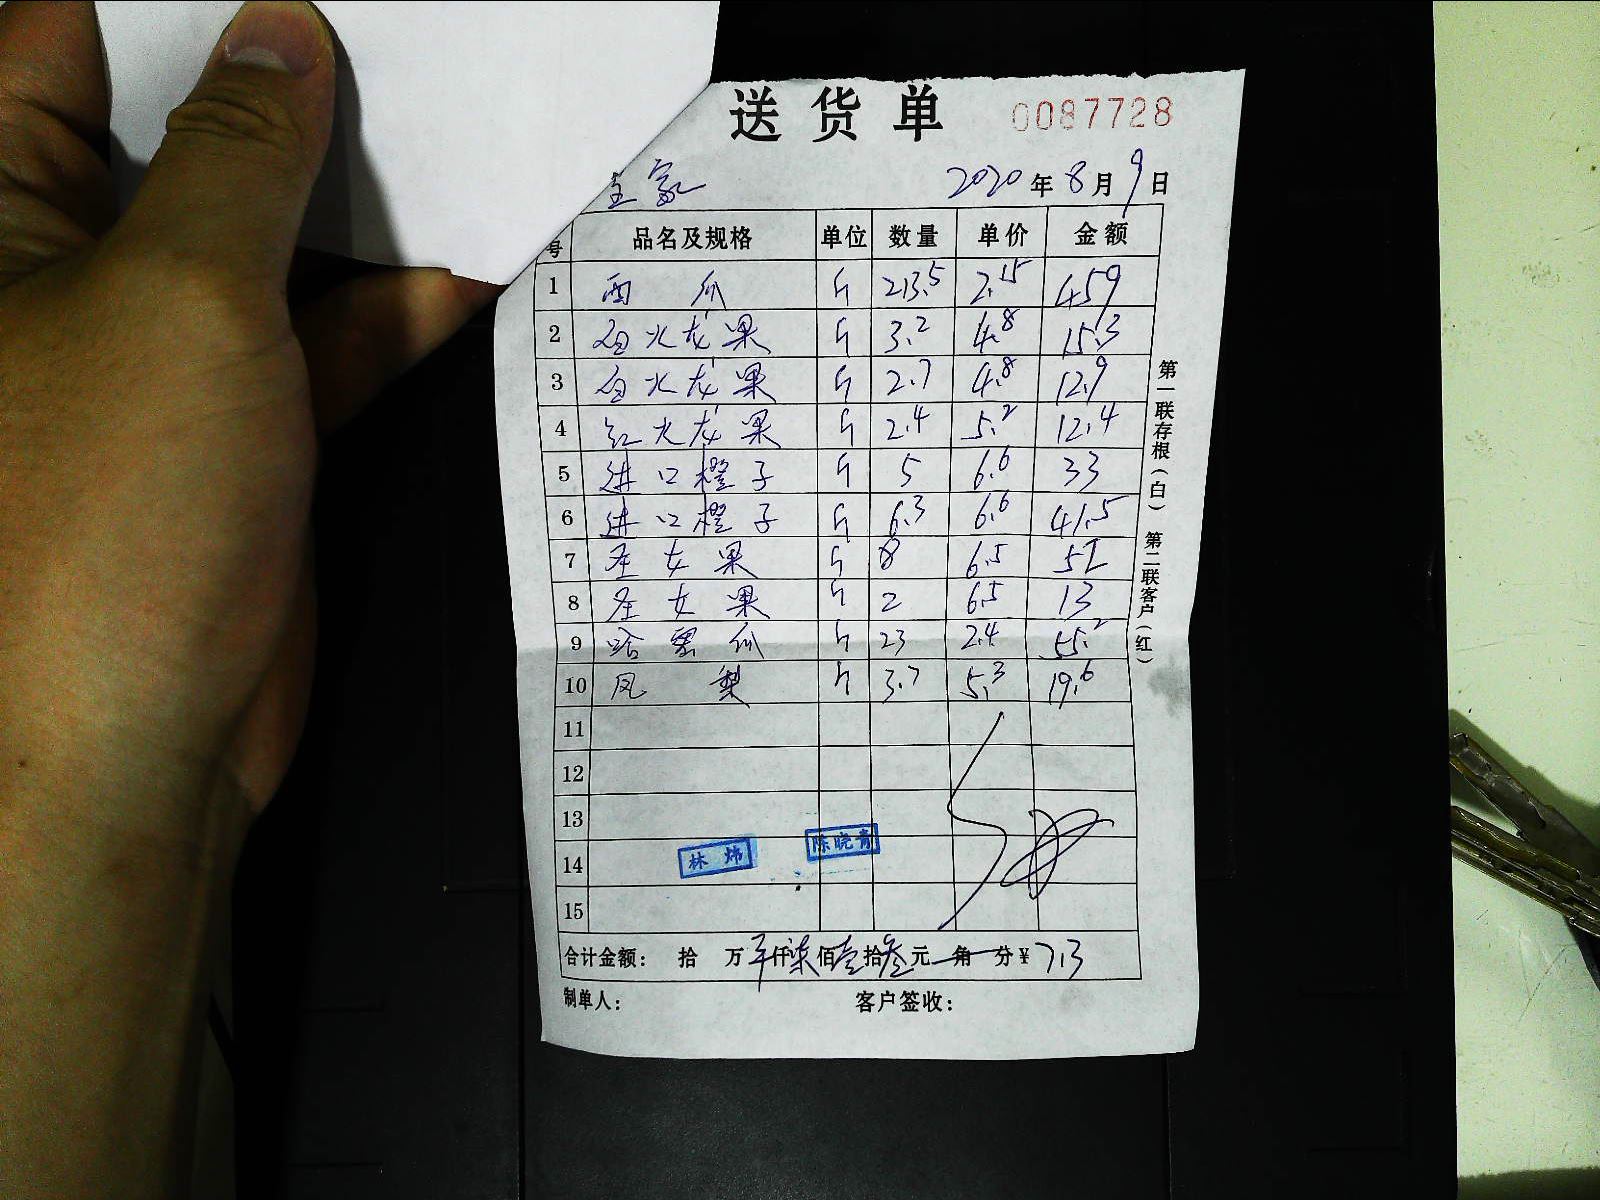 送货单 0087728
2020年8月9日
号 品名及规格 单位 数量 单价 金额
1 西瓜 斤 213.5 2.15 459
2 白火龙果 斤 3.2 4.8 15.3
3 白火龙果 斤 2.7 4.8 12.9
4 红火龙果 斤 2.4 5.2 12.4
5 进口橙子 斤 5 6.6 33
6 进口橙子 斤 6.3 6.6 41.5
7 圣女果 斤 8 6.5 52
8 圣女果 斤 2 6.5 13
9 哈密瓜 斤 23 2.4 55.2
10 凤梨 斤 3.7 5.3 19.6
11
12
13
14 林炜 陈晓青
15
合计金额: 拾 万 仟柒佰壹拾叁元 角 分¥ 713
制单人: 客户签收:
第一联存根(白) 第二联客户(红)